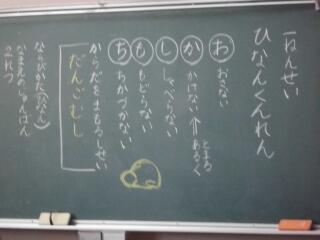 一ねんせい
ひなんくんれん
お か し も ち
おさない
かけない ⇐ あるく
とまる
しゃべらない
もどらない
ちかづかない
からだをまもるしせい
だんごむし
ならびかた(ひなん)
なまえのじゅんばん
2れつ